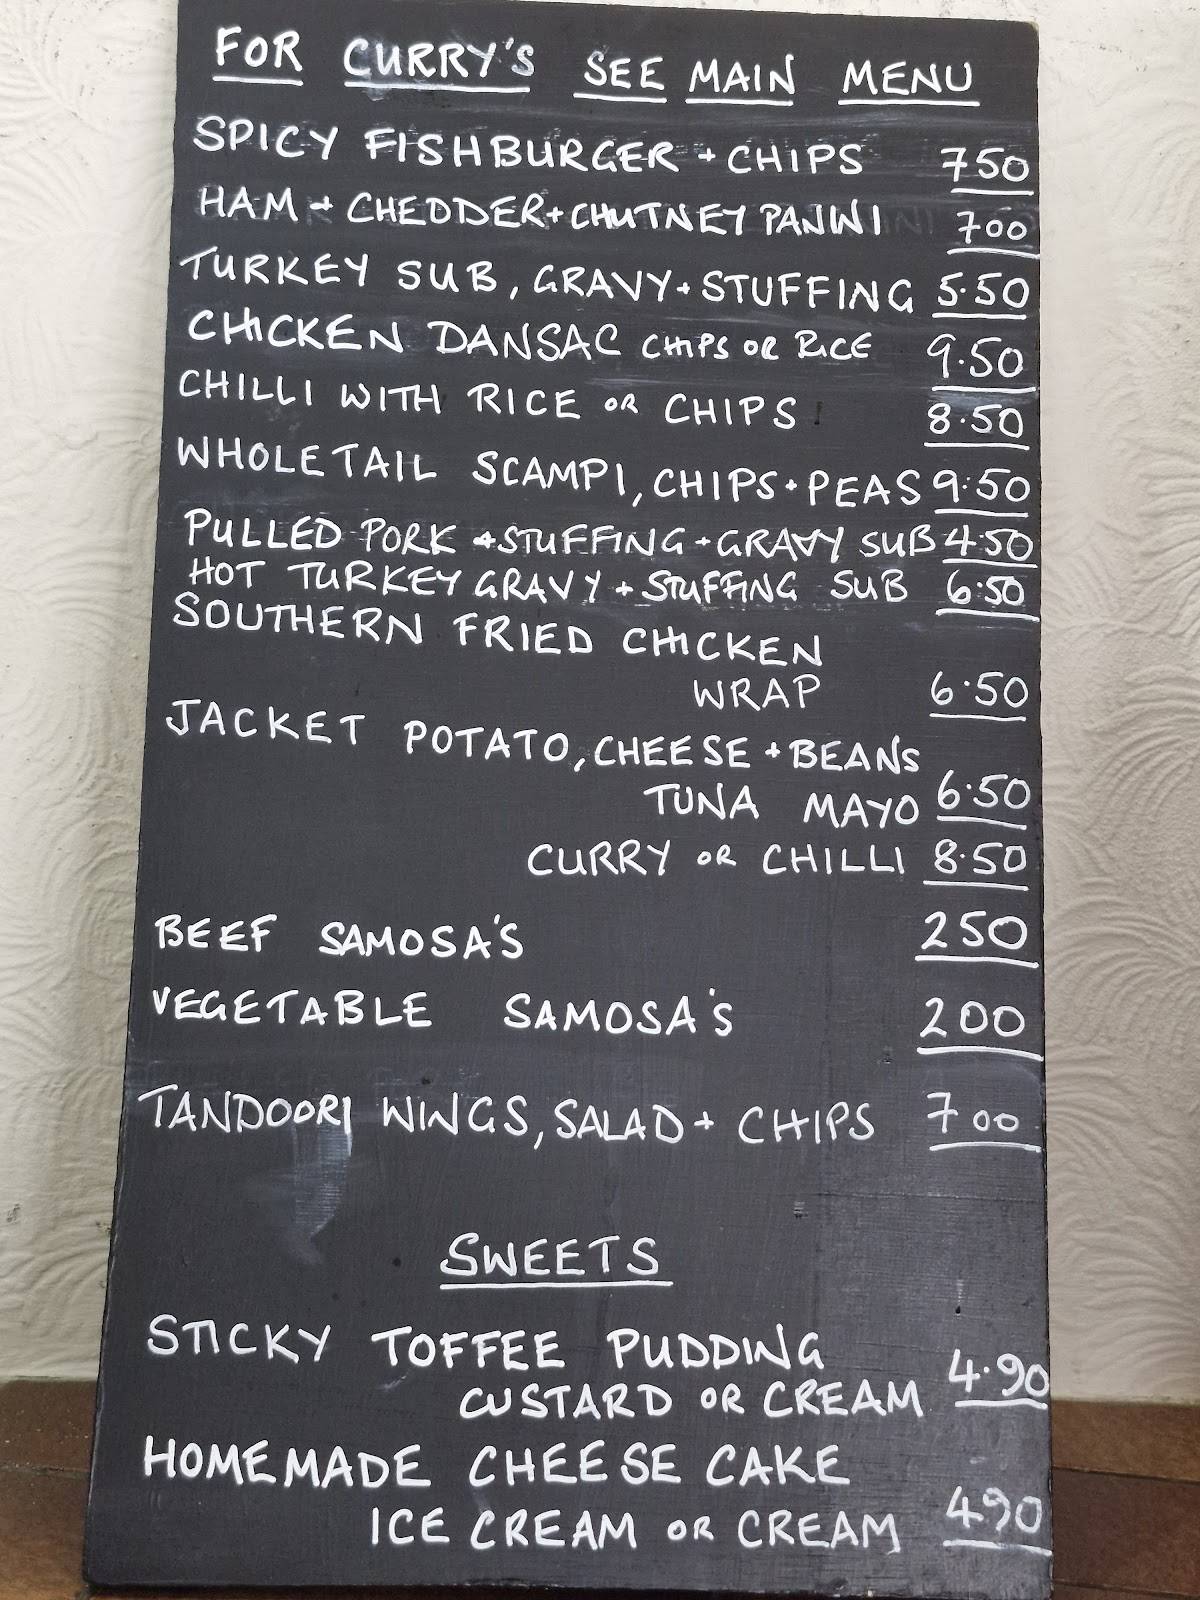 FOR CURRY'S SEE MAIN MENU
SPICY FISHBURGER + CHIPS 750
HAM + CHEDDER + CHUTNEY PANINI 700
TURKEY SUB, GRAVY + STUFFING 5.50
CHICKEN DANSAC CHIPS OR RICE 9.50
CHILLI WITH RICE OR CHIPS 8.50
WHOLETAIL SCAMPI, CHIPS + PEAS 9.50
PULLED PORK + STUFFING + GRAVY SUB 4.50
HOT TURKEY GRAVY + STUFFING SUB 6.50
SOUTHERN FRIED CHICKEN
WRAP 6.50
JACKET POTATO, CHEESE + BEANS
TUNA MAYO 6.50
CURRY OR CHILLI 8.50
BEEF SAMOSA'S 250
VEGETABLE SAMOSA'S 200
TANDOORI WINGS, SALAD + CHIPS 700
SWEETS
STICKY TOFFEE PUDDING
CUSTARD OR CREAM 4.90
HOMEMADE CHEESE CAKE
ICE CREAM OR CREAM 490